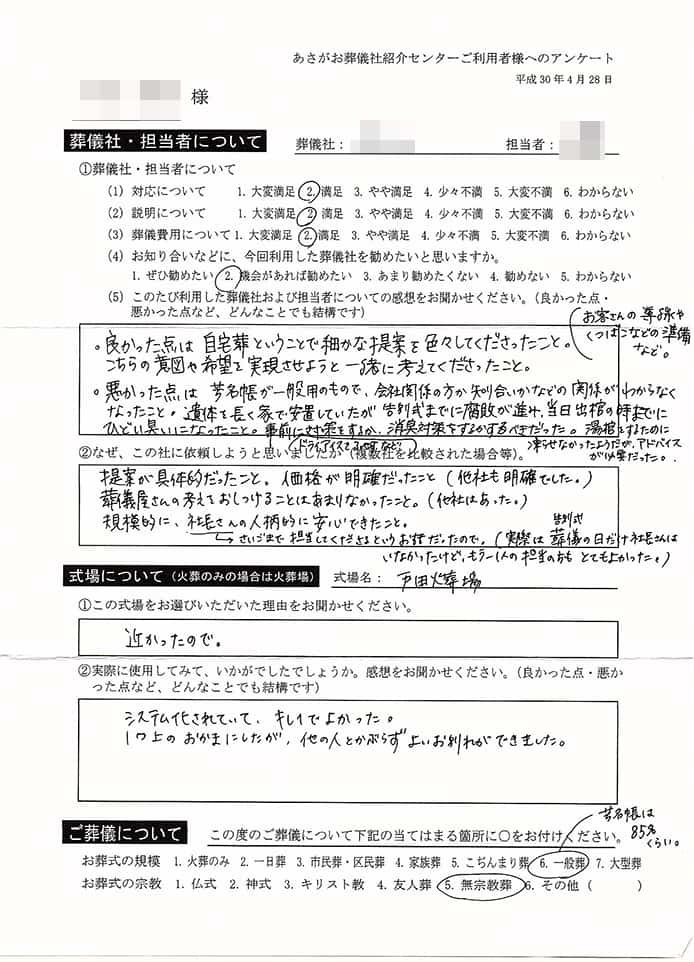 あさがお葬儀社紹介センターご利用者様へのアンケート
平成30年4月28日
様
葬儀社・担当者について
葬儀社： 担当者：
①葬儀社・担当者について
(1) 対応について 1. 大変満足 2. 満足 3. やや満足 4. 少々不満 5. 大変不満 6. わからない
(2) 説明について 1. 大変満足 2. 満足 3. やや満足 4. 少々不満 5. 大変不満 6. わからない
(3) 葬儀費用について 1. 大変満足 2. 満足 3. やや満足 4. 少々不満 5. 大変不満 6. わからない
(4) お知り合いなどに、今回利用した葬儀社を勧めたいと思いますか。
1. ぜひ勧めたい 2. 機会があれば勧めたい 3. あまり勧めたくない 4. 勧めない 5. わからない
(5) このたび利用した葬儀社および担当者についての感想をお聞かせください。（良かった点・
悪かった点など、どんなことでも結構です）
お客さんの導線や
くつばこなどの準備
など。
。良かった点は 自宅葬ということで細かな提案を色々してくださったこと。
こちらの意図や希望を実現させようと一緒に考えてくださったこと。
。悪かった点は 芳名帳が一般用のもので、会社関係の方か知り合いかなどの関係がわからなく
なったこと。遺体を長く家で安置していたが 告別式までに腐敗が進み、当日出棺の時までに
ひどい臭いになったこと。事前に対策をするか、消臭対策をするかするべきだった。湯棺をするために
ドライアイスを
凍らせなかったようだが、アドバイス
が必要だった。
②なぜ、この社に依頼しようと思いましたか（複数社を比較された場合等）。
提案が具体的だったこと。価格が明確だったこと（他社も明確でした。）
葬儀屋さんの考えをおしつけることはあまりなかったこと。（他社はあった。）
規模的に、社長さんの人柄的に安心できたこと。
→さいごまで担当してくださるというお話だったので。（実際は 告別式 葬儀の日だけ社長さんは
いなかったけど、もう一人の担当の方も とてもよかった。）
式場について（火葬のみの場合は火葬場） 式場名： 戸田火葬場
①この式場をお選びいただいた理由をお聞かせください。
近かったので。
②実際に使用してみて、いかがでしたでしょうか。感想をお聞かせください。（良かった点・悪か
った点など、どんなことでも結構です）
システム化されていて、キレイでよかった。
1つ上のおかまにしたが、他の人とかぶらずよいお別れができました。
芳名帳は
85%
くらい。
ご葬儀について この度のご葬儀について下記の当てはまる箇所に○をお付けください。
お葬式の規模 1. 火葬のみ 2. 一日葬 3. 市民葬・区民葬 4. 家族葬 5. こぢんまり葬 6. 一般葬 7. 大型葬
お葬式の宗教 1. 仏式 2. 神式 3. キリスト教 4. 友人葬 5. 無宗教葬 6. その他（ ）